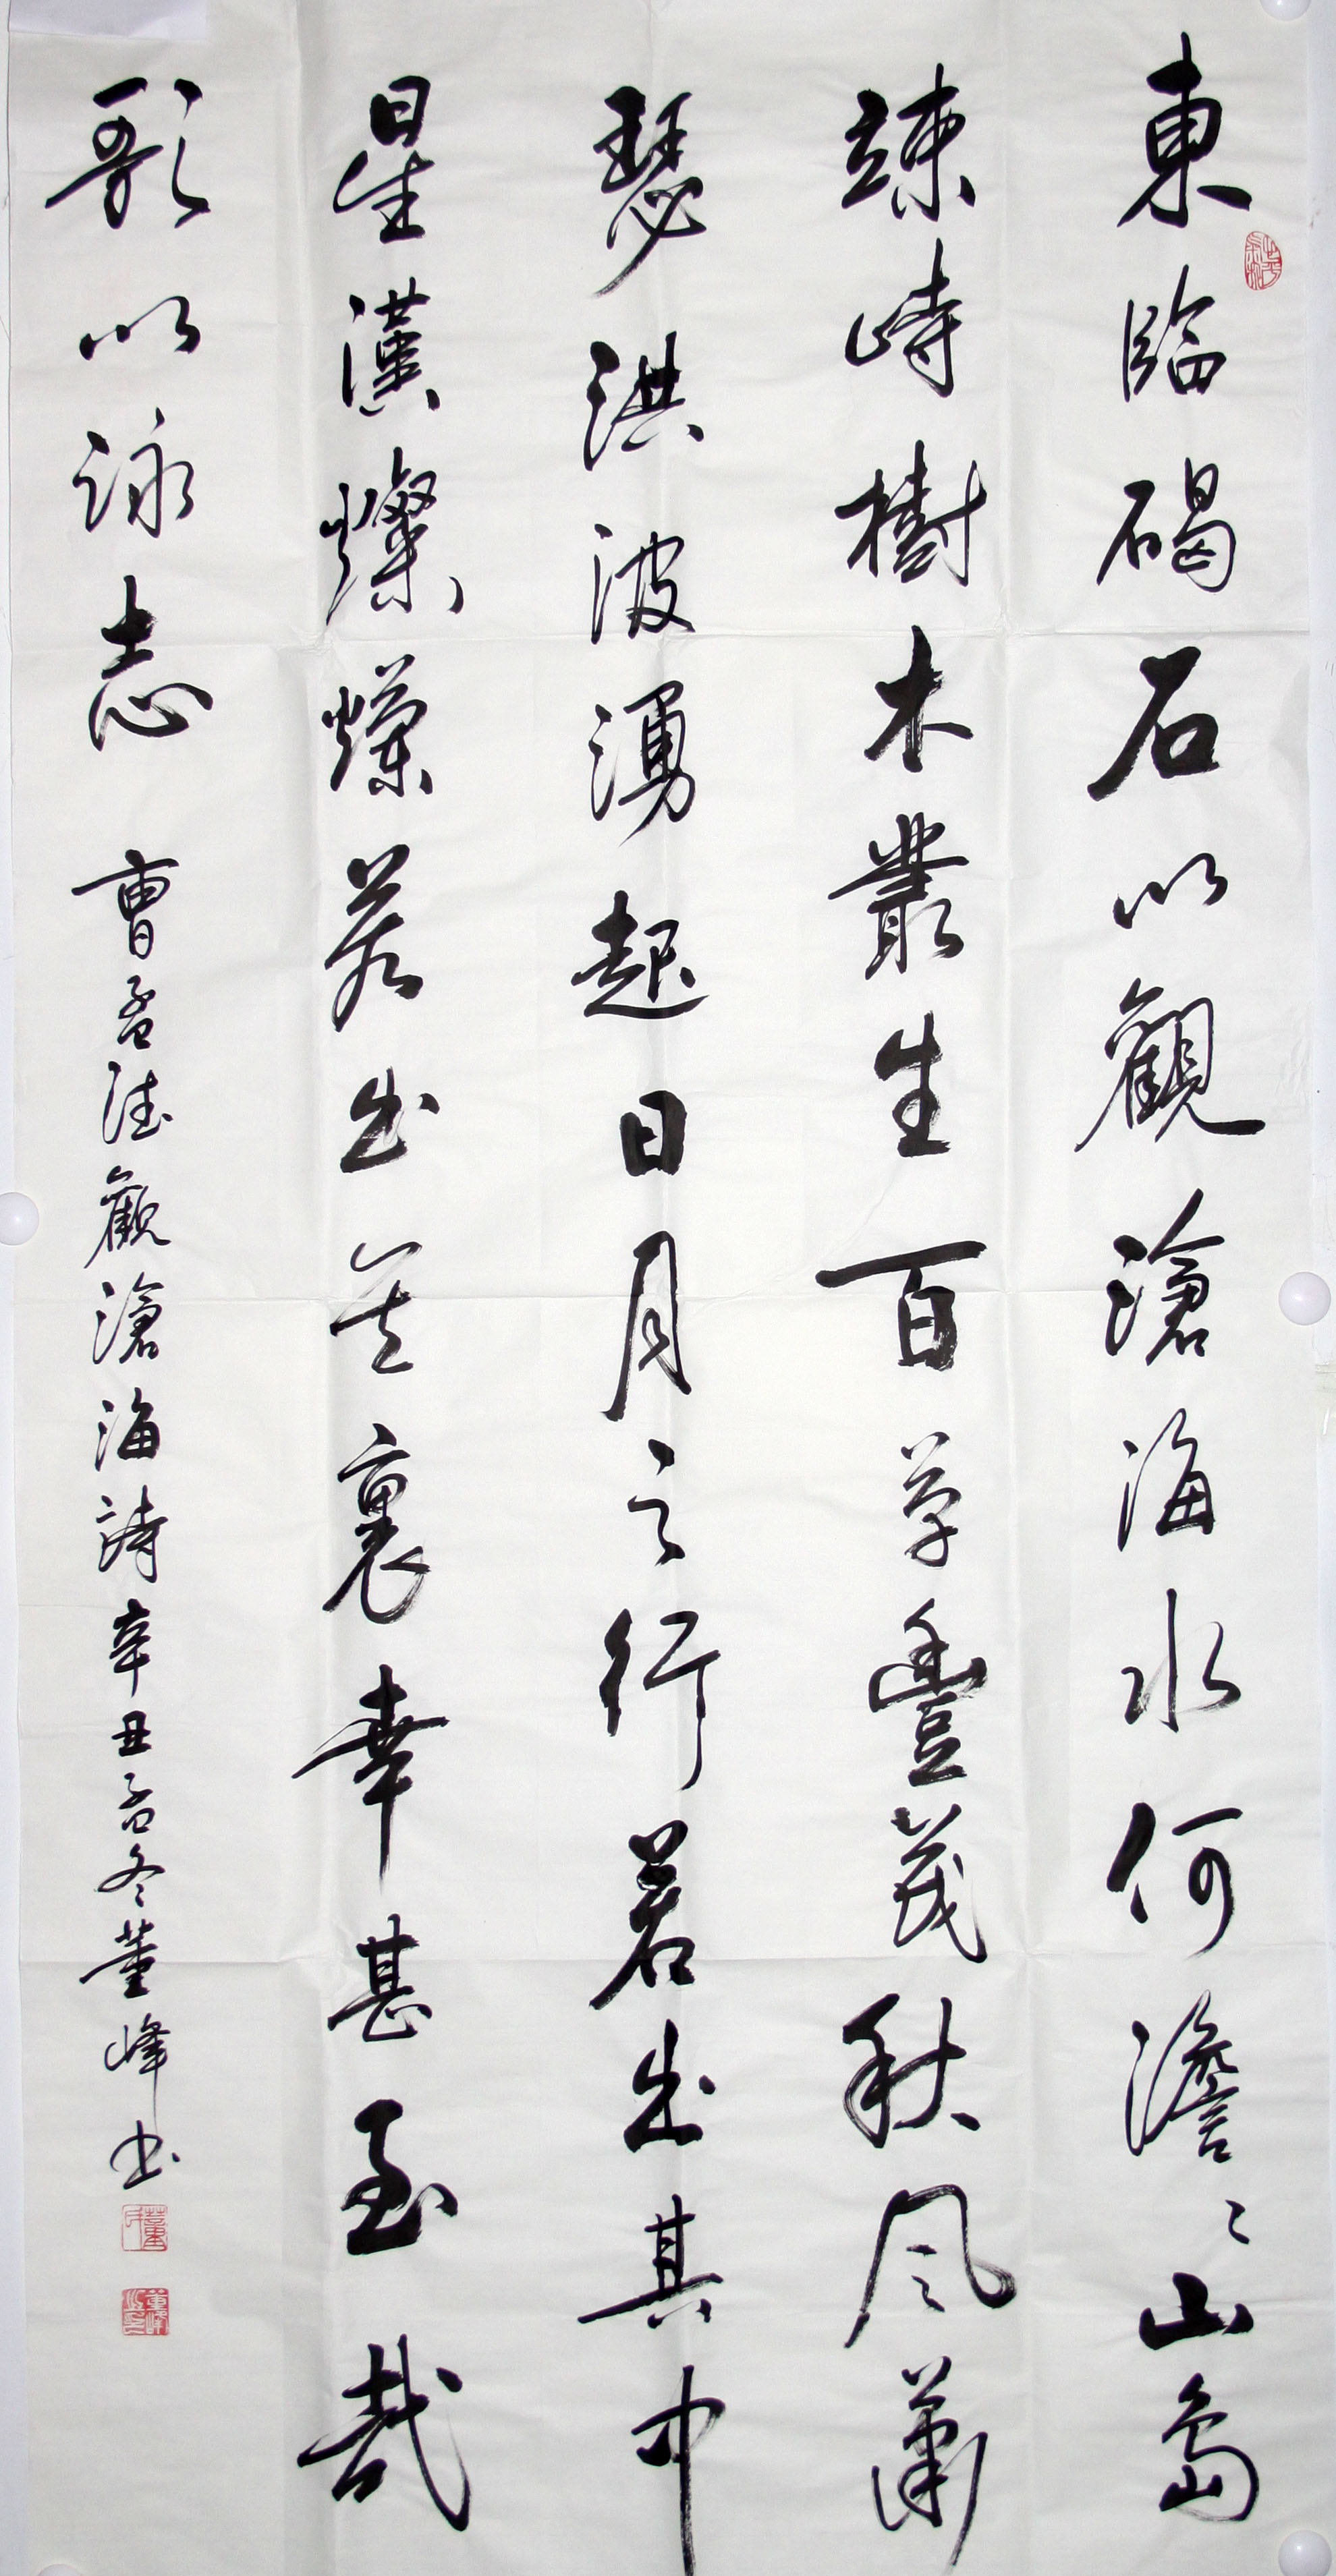 東臨碣石以觀滄海水何澹〻山島
竦峙樹木叢生百草豐茂秋風蕭
瑟洪波湧起日月之行若出其中
星漢燦爛若出其裏幸甚至哉
歌以詠志 曹孟德觀滄海詩辛丑孟冬董峰书